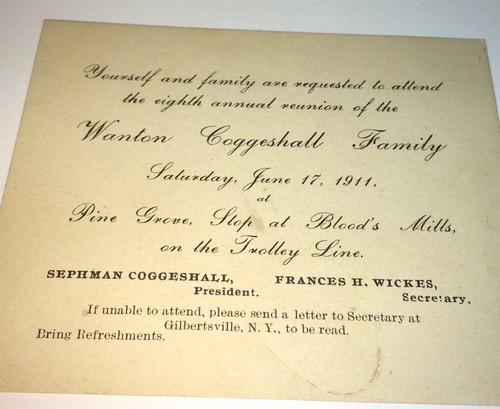 Yourself and family are requested to attend
the eighth annual reunion of the
Wanton Coggeshall Family
Saturday, June 17, 1911.
at
Pine Grove, Stop at Blood's Mills,
on the Trolley Line.
SEPHMAN COGGESHALL, FRANCES H. WICKES,
President. Secretary.
If unable to attend, please send a letter to Secretary at
Gilbertsville, N. Y., to be read.
Bring Refreshments.